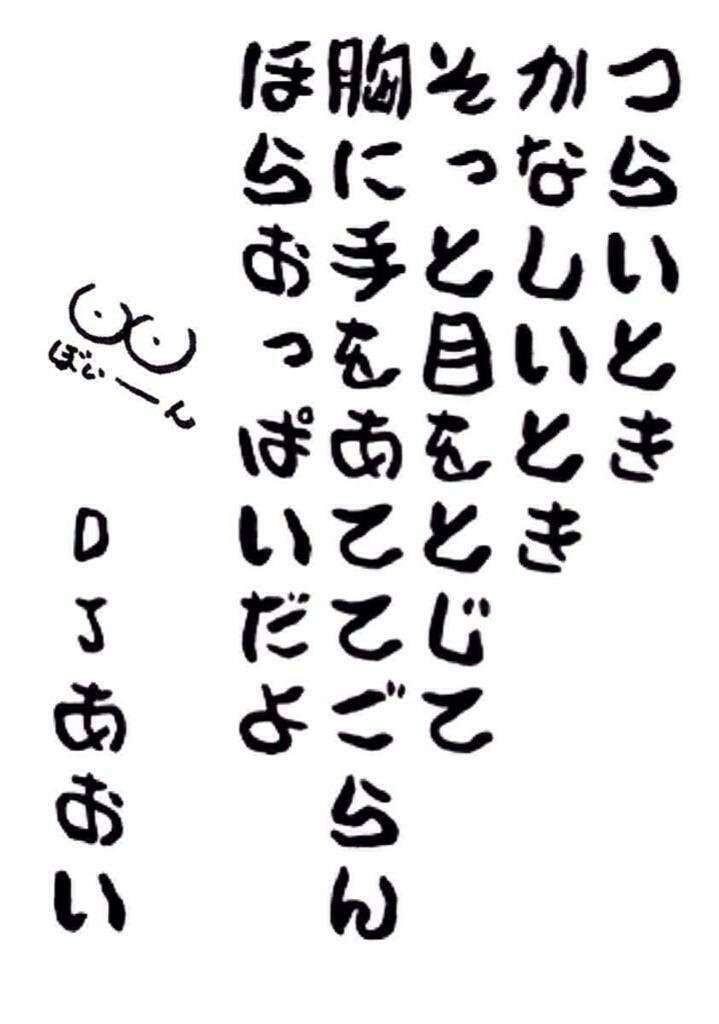 つらいとき
かなしいとき
そっと目をとじて
胸に手をあててごらん
ほらおっぱいだよ
ぼぃーん
DJあおい